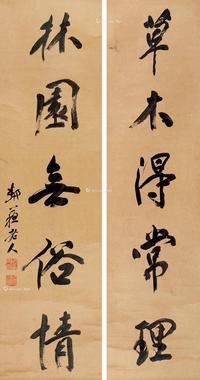 草木得常理
林園無俗情
鄭蘇老人